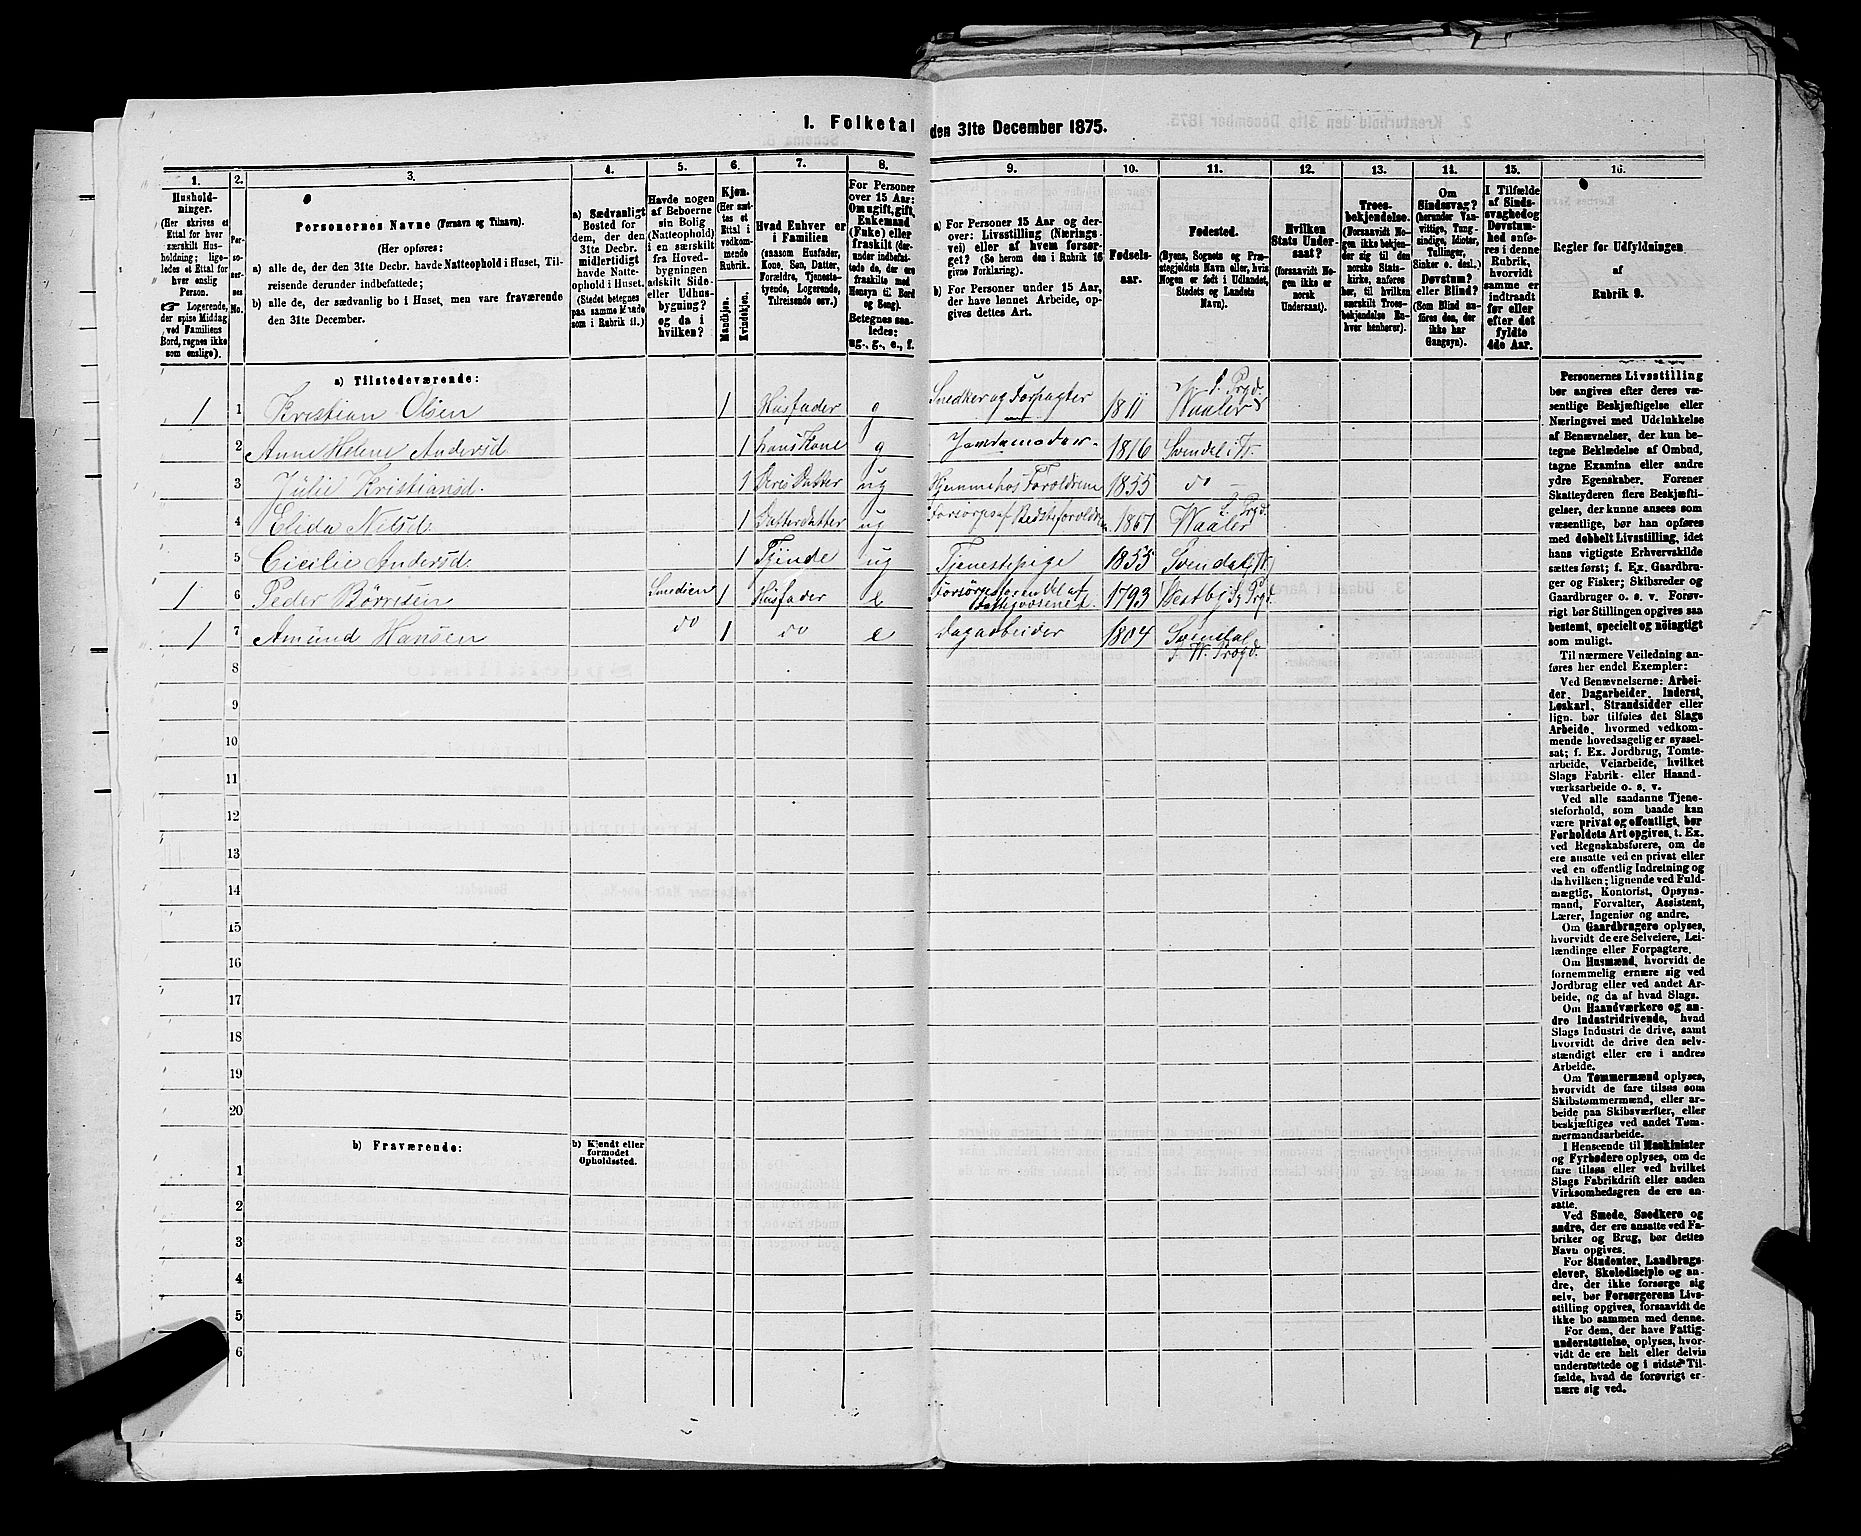 I. Folketal den 31te December 1875.
1.
Hushold-
ninger.
(Her skrives et
Ettal for hver
særskilt Hus-
holdning; lige-
ledes et Ettal for
hver enslig
Person.
☞ Logerende,
der spise Middag
ved Familiens
Bord, regnes ikke
som enslige).
2.
Per-
so-
ner-
nes
No.
3.
Personernes Navne (Fornavn og Tilnavn).
(Her opføres:
a) alle de, der den 31te Decbr. havde Natteophold i Huset, Til-
reisende derunder indbefattede;
b) alle de, der sædvanlig bo i Huset, men vare fraværende
den 31te December.
4.
a) Sædvanligt
Bosted for
dem, der den
31te Decbr.
midlertidigt
havde Natte-
ophold i Huset.
(Stedet betegnes
paa samme Maade
som i Rubrik 11.)
5.
Havde nogen
af Beboerne
sin Bolig
(Natteophold)
i en særskilt
fra Hoved-
bygningen
adskilt Side-
eller Udhus-
bygning?
og da i
hvilken?
6.
Kjøn.
(Her sæt-
tes et
Ettal i
vedkom-
mende
Rubrik.
Mandkjøn.
Kvindekjøn.
7.
Hvad Enhver er
i Familien
(saasom Husfader,
Kone, Søn, Datter,
Forældre, Tjeneste-
tyende, Logerende,
Tilreisende osv.)
8.
For Personer
over 15 Aar:
Om ugift, gift,
Enkemand
(Enke) eller
fraskilt (der-
under indbefat-
tede de, der ere
fraskilte med
Hensyn til Bord
og Seng).
Betegnes saa-
ledes:
ug., g., e., f.
9.
a) For Personer 15 Aar og der-
over: Livsstilling (Nærings-
vei) eller af hvem forsør-
get? (Se herom den i Rubrik 16
givne Forklaring).
b) For Personer under 15 Aar,
der have lønnet Arbeide, op-
gives dettes Art.
10.
Fødsels-
aar.
11.
Fødested.
(Byens, Sognets og Præ-
stegjeldets Navn eller, hvis
Nogen er født i Udlandet,
Stedets og Landets
Navn).
12.
Hvilken
Stats Under-
saat?
(forsaavidt No-
gen ikke er
norsk
Undersaat).
13.
Troes-
bekjendelse.
(Forsaavidt No-
gen ikke bekjen-
der sig til den
norske Stats-
kirke, anføres
her, til hvilken
særskilt Troes-
bekjendelse En-
hver henhører).
14.
Om
Sindssvag?
(herunder Van-
vittige, Tung-
sindige, Idioter,
Tullinger,
Sinker o. desl.)
Døvstum?
eller Blind?
(Som Blind an-
føres den, der
ikke har
Gangsyn).
15.
I Tilfælde
af Sinds-
svaghed og
Døvstum-
hed anfø-
res i denne
Rubrik,
hvorvidt
samme er
indtraadt
før eller
efter det
fyldte
4de Aar.
16.
Regler for Udfyldningen
af
Rubrik 9.
a) Tilstedeværende:
1 1 Kristian Olsen 1 Husfader g Snedker og Forpagter 1811 Waaler
2 Anne Helene Andersd 1 hans Kone g Jordemoder 1816 Svendel i W.
3 Julie Kristiansd. 1 Datter ug Hjemme hos Foreldrene 1855 do
4 Elida Nilsd. 1 Datterdatter ug Forsørges af Bedsteforeldre Waaler
5 Cicilie Andersd. 1 Tjende ug Tjenestepige 1855 Svendal
1 6 Peder Börresen 1 Husfader e 1793 Vestby Prgd.
1 7 Amund Hansen do 1 do e Dagarbeider 1804 Svendal
i W. Prgd.
8
9
10
11
12
13
14
15
16
17
18
19
20
b) Fraværende:
b) Kjendt eller
formodet
Opholdssted.
1
2
3
4
5
6
Personernes Livsstilling
bør angives efter deres væ-
sentlige Beskjæftigelse eller
Næringsvei med Udelukkelse
af Benævnelser, der kun be-
tegne Beklædelse af Ombud,
tagne Examina eller andre
ydre Egenskaber. Forener
Skatteyderen flere Beskjæfti-
gelser, der kunne ansees som
væsentlige, bør han opføres
med dobbelt Livsstilling, idet
hans vigtigste Erhvervskilde
sættes først; f. Ex. Gaardbru-
ger og Fisker; Skibsreder og
Gaardbruger o. s. v. Forøv-
rigt bør Stillingen opgives saa
bestemt, specielt og nøiagtigt
som muligt.
Til nærmere Veiledning an-
føres her endel Exempler:
Ved Benævnelserne: Arbei-
der, Dagarbeider, Inderst,
Løskarl, Strandsidder eller
lign. bør tilføies det Slags
Arbeide, hvormed vedkom-
mende hovedsagelig er syssel-
sat; f. Ex. Jordbrug, Tomte-
arbeide, Veiarbeide, hvilket
Slags Fabrik- eller Haand-
værksarbeide o. s. v.
Ved alle saadanne Tjene-
steforhold, som baade kan
være privat og offentligt, bør
Forholdets Art opgives, t. Ex.
ved Regnskabsførere, om de
ere ansatte ved en privat eller
ved en offentlig Indretning og
da hvilken; lignende ved Fuld-
mægtig, Kontorist, Opsyns-
mand, Forvalter, Assistent,
Lærer, Ingeniør og andre.
Om Gaardbrugere oplyses,
hvorvidt de ere Selveiere, Lei-
lændinge eller Forpagtere.
Om Husmænd, hvorvidt de
fornemmelig ernære sig ved
Jordbrug eller ved andet Ar-
beide, og da af hvad Slags.
Om Haandværkere og an-
dre Industridrivende, hvad
Slags Industri de drive, samt
hvorvidt de drive den selv-
stændigt eller ere i andres
Arbeide.
Om Tømmermænd oplyses,
hvorvidt de fare tilsøs som
Skibstømmermænd, eller ar-
beide paa Skibsværfter, eller
beskjæftiges ved andet Tøm-
mermandsarbeide.
I Henseende til Maskinister
og Fyrbødere oplyses, om de
fare tilsøs eller ved hvilket
Slags Fabrikdrift eller anden
Virksomhedsgren de ere an-
satte.
Ved Smede, Snedkere og
andre, der ere ansatte ved Fa-
briker og Brug, bør dettes
Navn opgives.
For Studenter, Landbrugs-
elever, Skoledisciple og an-
dre, der ikke forsørge sig
selv, bør Forsørgerens Livs-
stilling opgives, forsaavidt de
ikke bo sammen med denne.
For dem, der have Fattig-
understøttelse, oplyses, hvor-
vidt de ere helt eller delvis
understøttede og i sidste Til-
fælde, hvad de forøvrigt er-
nære sig ved.